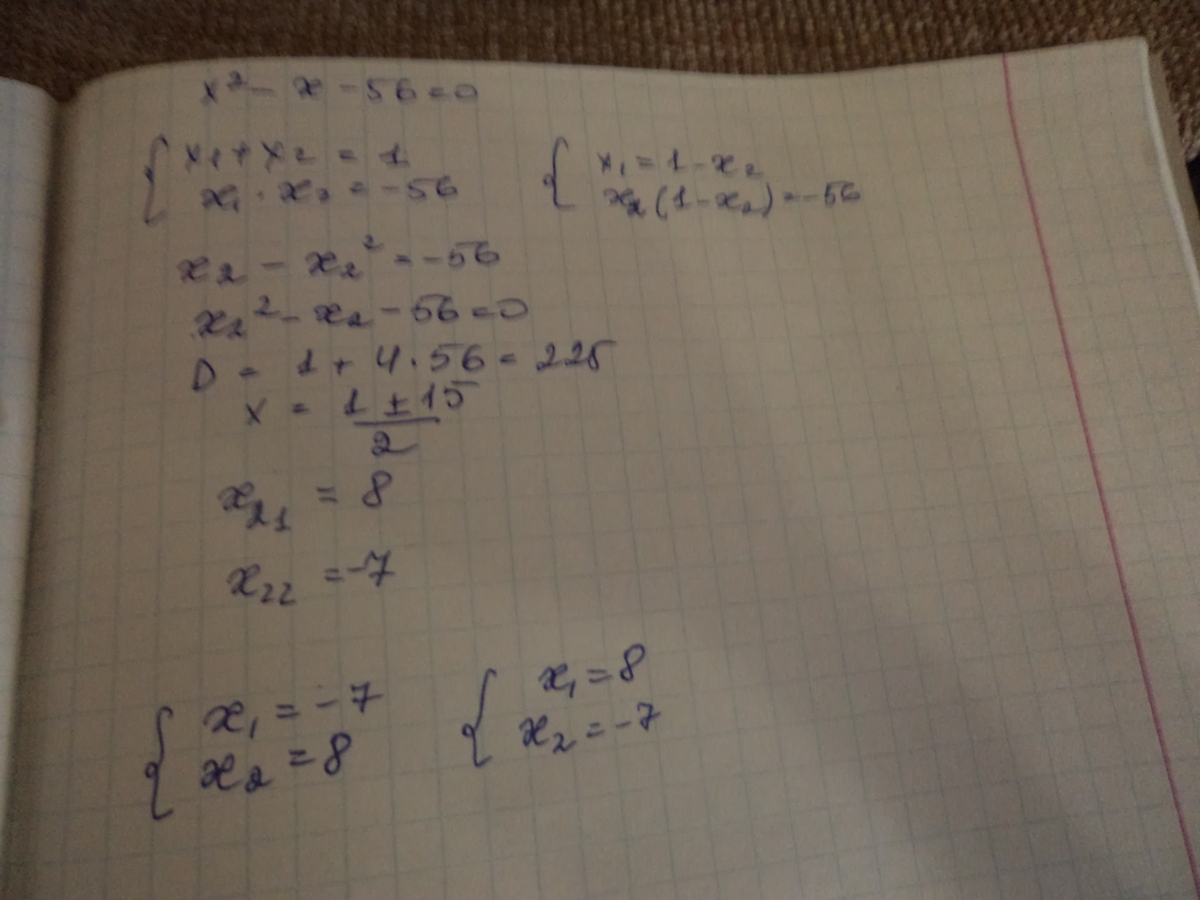 x² - x - 56 = 0
{ x₁ + x₂ = 1
x₁ · x₂ = -56
{ x₁ = 1 - x₂
x₂(1 - x₂) = -56
x₂ - x₂² = -56
x₂² - x₂ - 56 = 0
D = 1 + 4 · 56 = 225
x = (1 ± 15)/2
x₂₁ = 8
x₂₂ = -7
{ x₁ = -7
x₂ = 8
{ x₁ = 8
x₂ = -7